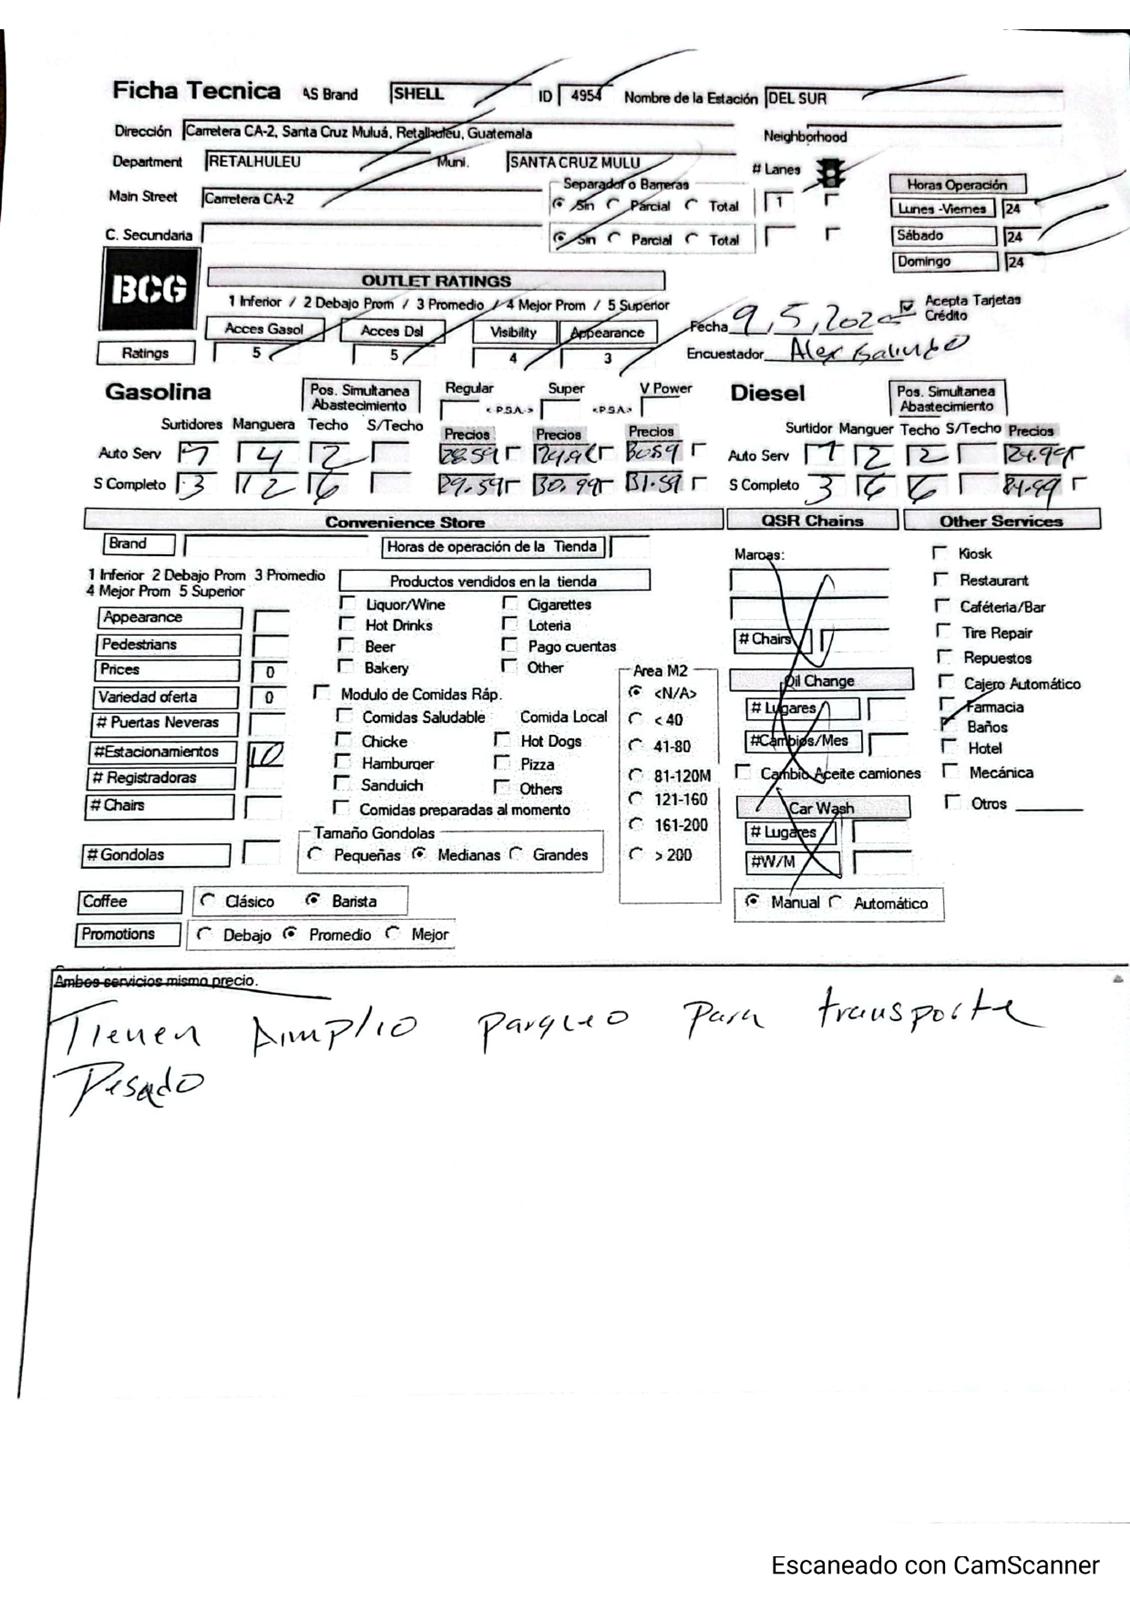 Ficha Tecnica AS Brand SHELL ID 4954 Nombre de la Estación DEL SUR
Dirección Carretera CA-2, Santa Cruz Muluá, Retalhuleu, Guatemala Neighborhood
Department RETALHULEU Muni. SANTA CRUZ MULU # Lanes
Main Street Carretera CA-2 Separador o Barreras Sin Parcial Total 1
Horas Operación
Lunes -Viernes 24
C. Secundaria Sin Parcial Total
Sábado 24
Domingo 24
BCG
OUTLET RATINGS
1 Inferior / 2 Debajo Prom / 3 Promedio / 4 Mejor Prom / 5 Superior
Acces Gasol Acces Dsl Visibility Appearance
Ratings 5 5 4 3
Fecha 9,5,202 Acepta Tarjetas Crédito
Encuestador Alex Galindo
Gasolina Pos. Simultanea Abastecimiento Regular < P.S.A.> Super <P.S.A.> V Power
Surtidores Manguera Techo S/Techo Precios Precios Precios
Auto Serv 4 2 28.59
S Completo 3 12 6 29.59 30.99 31.59
Diesel Pos. Simultanea Abastecimiento
Surtidor Manguer Techo S/Techo Precios
Auto Serv 1 2 2 24.99
S Completo 3 6 6
Convenience Store
Brand Horas de operación de la Tienda
1 Inferior 2 Debajo Prom 3 Promedio
4 Mejor Prom 5 Superior
Appearance
Pedestrians
Prices 0
Variedad oferta 0
# Puertas Neveras
#Estacionamientos 10
# Registradoras
# Chairs
# Gondolas
Productos vendidos en la tienda
Liquor/Wine Cigarettes
Hot Drinks Loteria
Beer Pago cuentas
Bakery Other
Modulo de Comidas Ráp.
Comidas Saludable Comida Local
Chicke Hot Dogs
Hamburger Pizza
Sanduich Others
Comidas preparadas al momento
Tamaño Gondolas
Pequeñas Medianas Grandes
Area M2
<N/A>
< 40
41-80
81-120M
121-160
161-200
> 200
Coffee Clásico Barista
Promotions Debajo Promedio Mejor
QSR Chains
Marcas:
# Chairs
Oil Change
# Lugares
#Cambios/Mes
Cambio Aceite camiones
Car Wash
# Lugares
#W/M
Manual Automático
Other Services
Kiosk
Restaurant
Caféteria/Bar
Tire Repair
Repuestos
Cajero Automático
Farmacia
Baños
Hotel
Mecánica
Otros
Ambos servicios mismo precio.
Tienen Amplio parqueo para transporte
Pesado
Escaneado con CamScanner